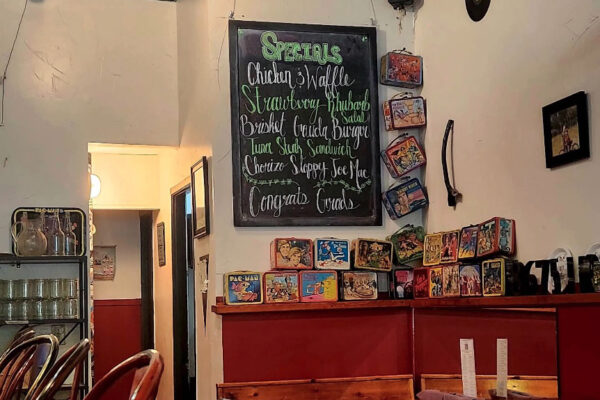 Specials
Chicken & Waffle
Strawberry Rhubarb
Salad
Brisket Gouda Burger
Tuna Steak Sandwich
Chorizo Sloppy Joe Mac
Congrats Grads
PAC-MAN